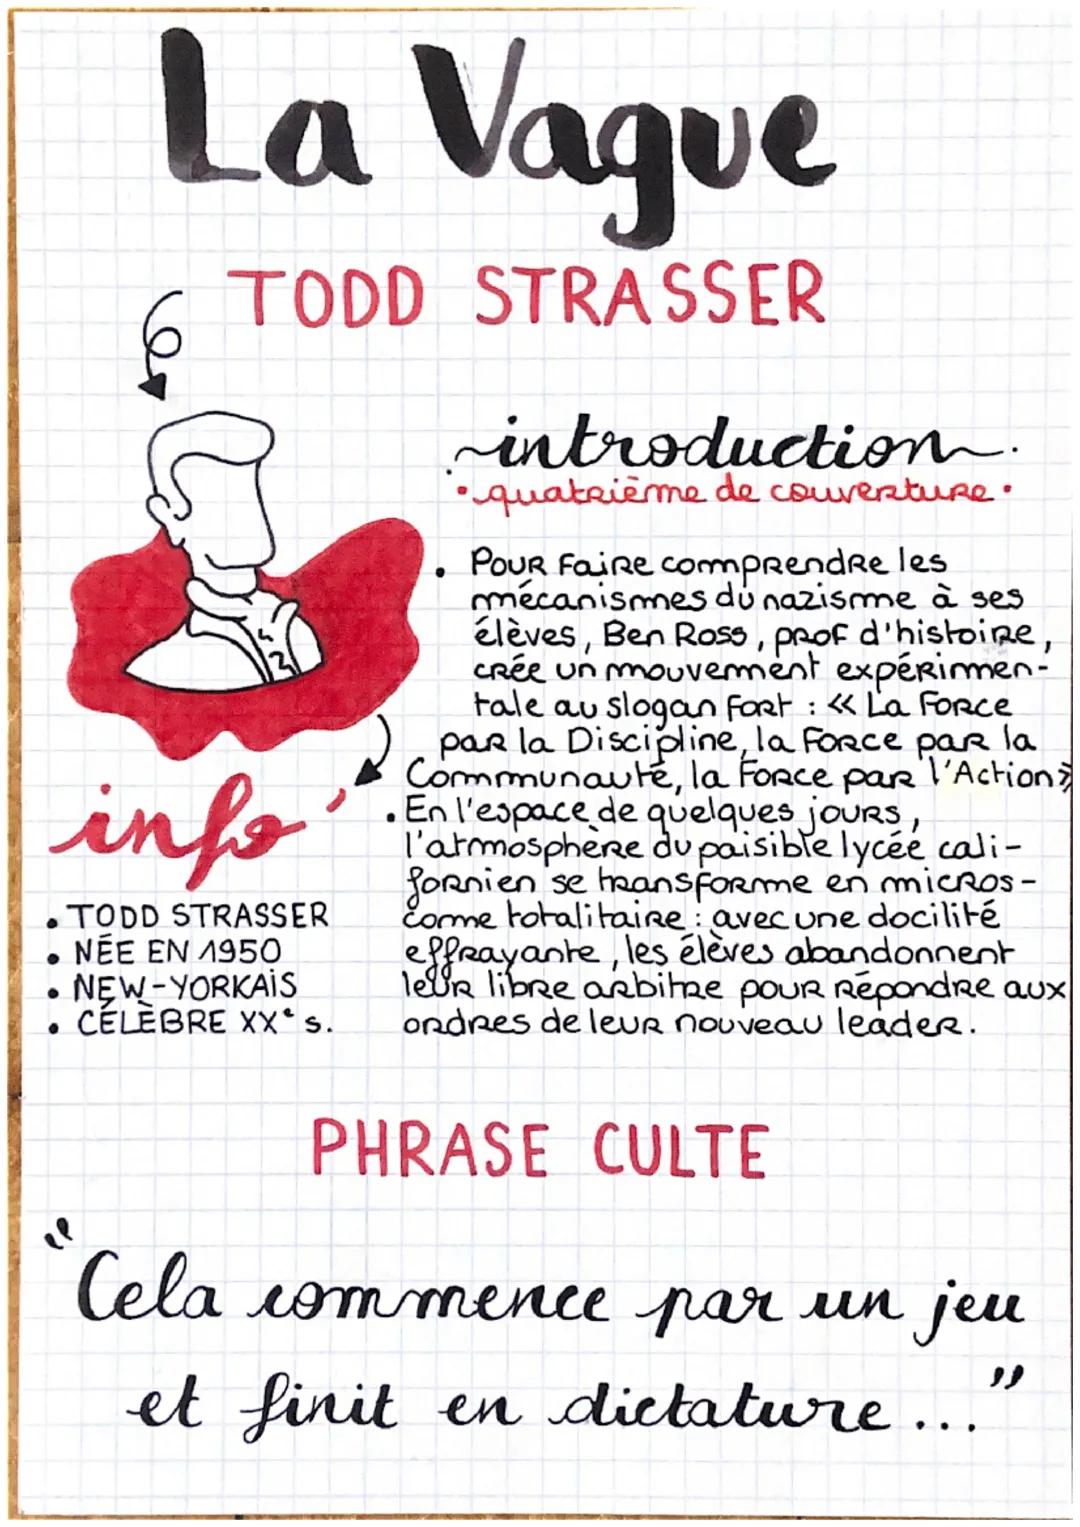 La Vague
TODD STRASSER
introduction
• quatrième de couverture •
• Pour faire comprendre les
mécanismes du nazisme à ses
élèves, Ben Ross, prof d'histoire,
crée un mouvement expérimen-
tale au slogan fort : « La Force
par la Discipline, la Force par la
Communauté, la Force par l'Action»
• En l'espace de quelques jours,
l'atmosphère du paisible lycée cali-
fornien se transforme en micros-
come totalitaire : avec une docilité
effrayante, les élèves abandonnent
leur libre arbitre pour répondre aux
ordres de leur nouveau leader.
info'
• TODD STRASSER
• NÉE EN 1950
• NEW-YORKAIS
• CÉLÈBRE XXe s.
PHRASE CULTE
"Cela commence par un jeu
et finit en dictature..."